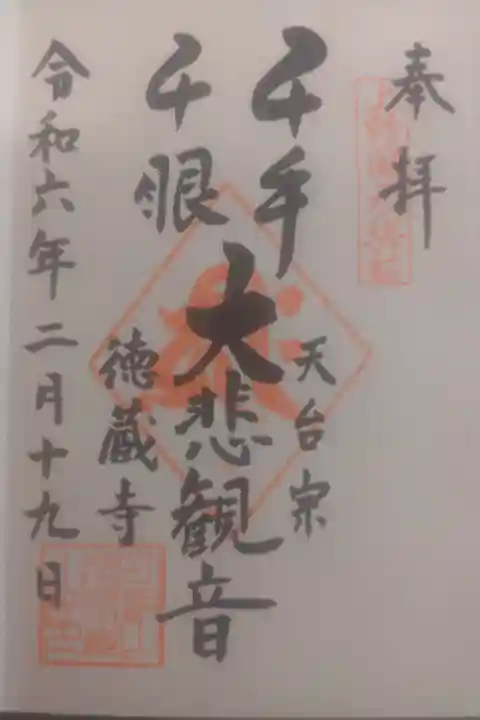 奉拝
天台宗
千手
千眼
大悲観音
徳蔵寺
令和六年二月十九日